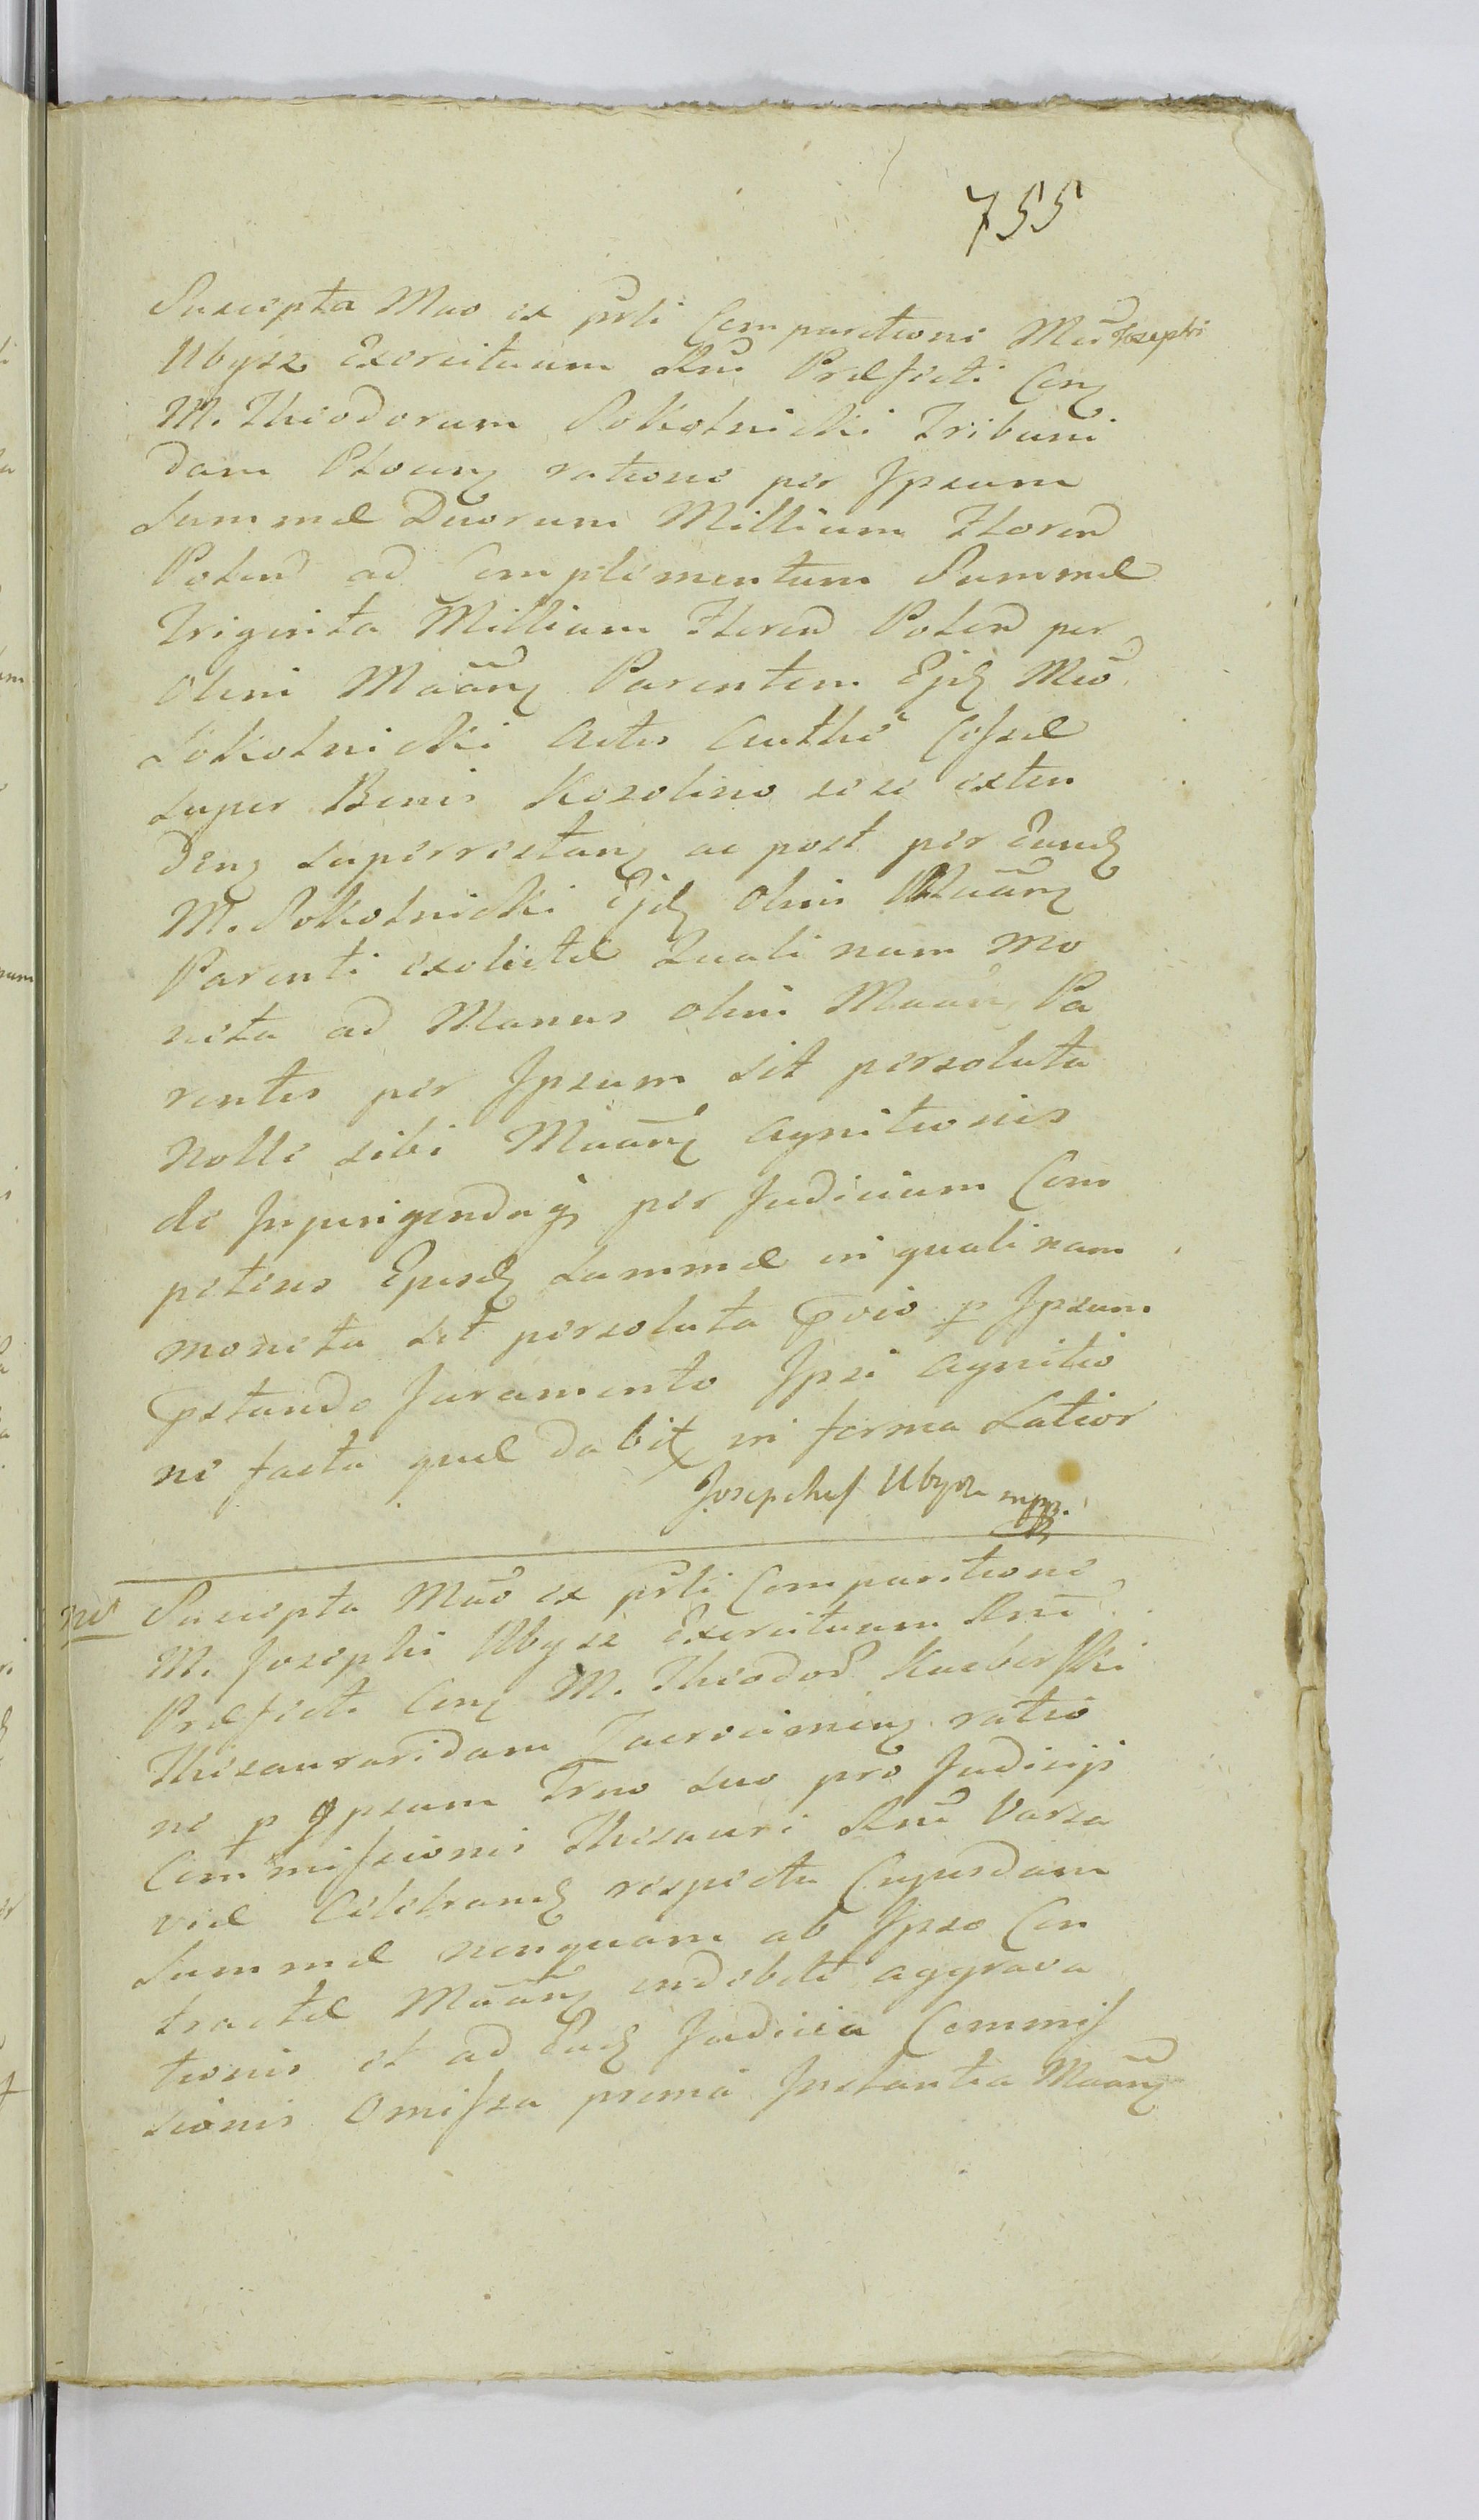 755
Suscepta Mao ex pñli Comparitioni Mci Josephi
Ubysz Exercituum Rni Præfecti Conz
M. Theodorum Sokolnicki Tribuni
dam Plocenz ratione per Ipsum
Summæ Duorum Millium Floren
Polen ad Complementum Summæ
Triginta Millium Floren Polen per
Olim Maanz Parentem Ejdz Mco
Sokolnicki Actis Authẽ Cessæ
super Bonis Kozolino sese exten
denz superrestanz ac post per Eundz
M. Sokolnicki Ejdz Olim Maanz
Parenti exolutæ Quali nam mo
neta ad Manus olim Maanz Pa
rentis per Ipsum sit persoluta
nolle sibi Maanz agnitionis
de Injurigendaqz per Judicium Com
petens Ejusdz Summæ in quali nam
moneta sit persoluta pvio p Ipsum
pstando Juramento Ipsi agnitio
ne facta quæ dabitz in forma Latior
Josephus Ubysz mpp.
nt Suscepta Mao ex pñli Comparitione
M. Josephi Ubysz Exercituum Rni
Præfecti Conz M. Theodor Kucborski
Thesauraridam Zacrocimenz ratio
ne p Ipsum Trno suo pro Judicijs
Commissionis Thesauri Rni Varsa
viæ Celebrandz respectu Cujusdam
Summæ nunquam ab Ipso Con
tractæ Maanz indebite aggrava
tionis et ad Eadz Judicia Commis
sionis Omissa prima Instantia Maanz